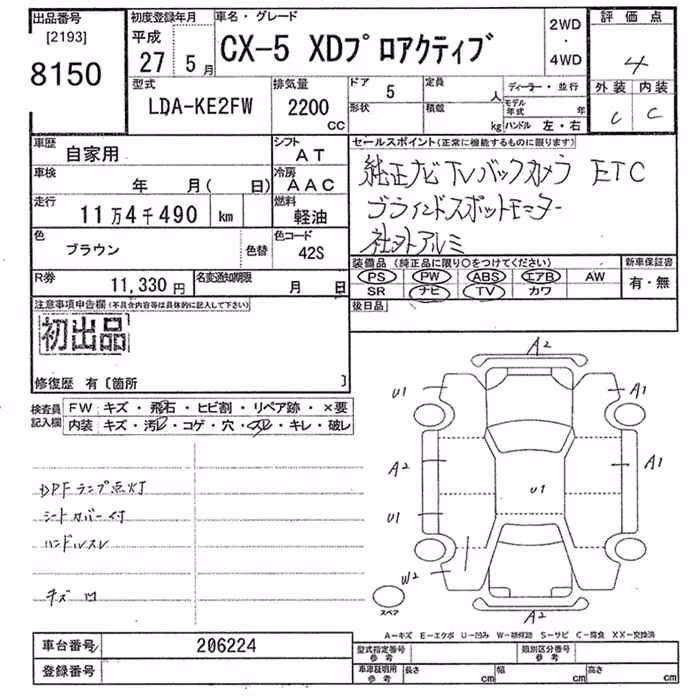 出品番号 初度登録年月 車名・グレード 評価点
[2193] 平成 CX-5 XDプロアクティブ 2WD ・ 4WD 4
8150 27 5月
型式 排気量 ドア 5 定員 人 ディーラー・並行 外装 内装
LDA-KE2FW 2200 CC 形状 積載 kg モデル年式 年 C C
ハンドル 左・右
車歴 自家用 シフト AT セールスポイント(正常に機能するものに限ります)
車検 年 月( 日) 冷房 AAC 純正ナビTVバックカメラ ETC
走行 11万4千490 km 燃料 軽油 ブラインドスポットモニター
色 ブラウン 色替 色コード 42S 社外アルミ
装備品 (純正品に限り○をつけてください) 新車保証書
R券 11,330円 名変通知期限 月 日 PS PW ABS エアB AW 有・無
SR ナビ TV カワ
注意事項申告欄(不具合内容等は具体的に記入して下さい) 後日品
初出品
修復歴 有〔箇所 〕
検査員記入欄 FW キズ・飛石・ヒビ割・リペア跡・×要
内装 キズ・汚レ・コゲ・穴・スレ・キレ・破レ
A2
U1 A1
A2 A1
U1 U1
W2
A2
DPFランプ点灯
シートカバー付
ハンドルスレ
キズ凹
スペア
A-キズ E-エクボ U-凹み W-補修跡 S-サビ C-腐食 XX-交換済
車台番号 206224 型式指定番号 参考 類別区分番号 参考
登録番号 車庫証明用 参考 長さ cm 幅 cm 高さ cm